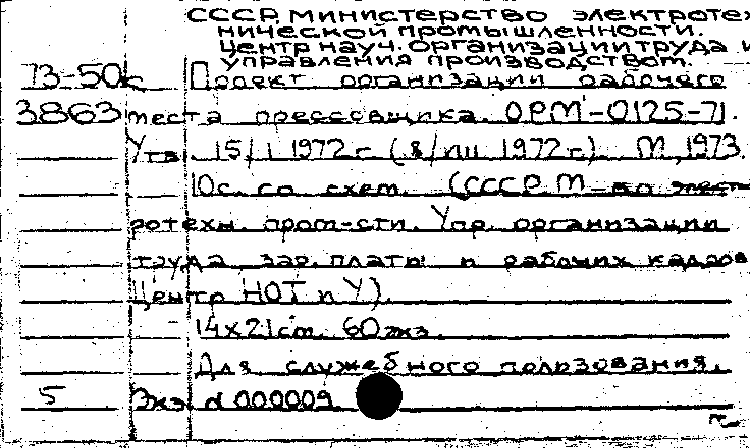 СССР. Министерство электроте
нической промышленности.
Центр науч. организации труда и
управления производством.
73-50к Проект организации рабочего
3863 места прессовщика. ОРМ-0125-71.
Утв. 15/I 1972 г. (8/VIII 1972 г.). М., 1973.
10 с. со схем. (СССР. М-во элект
ротехн. пром-сти. Упр. организации
труда, зар. платы и рабочих кадров
Центр НОТ и У).
14x21 см. 60 экз.
Для служебного пользования.
5 Экз. № 000009